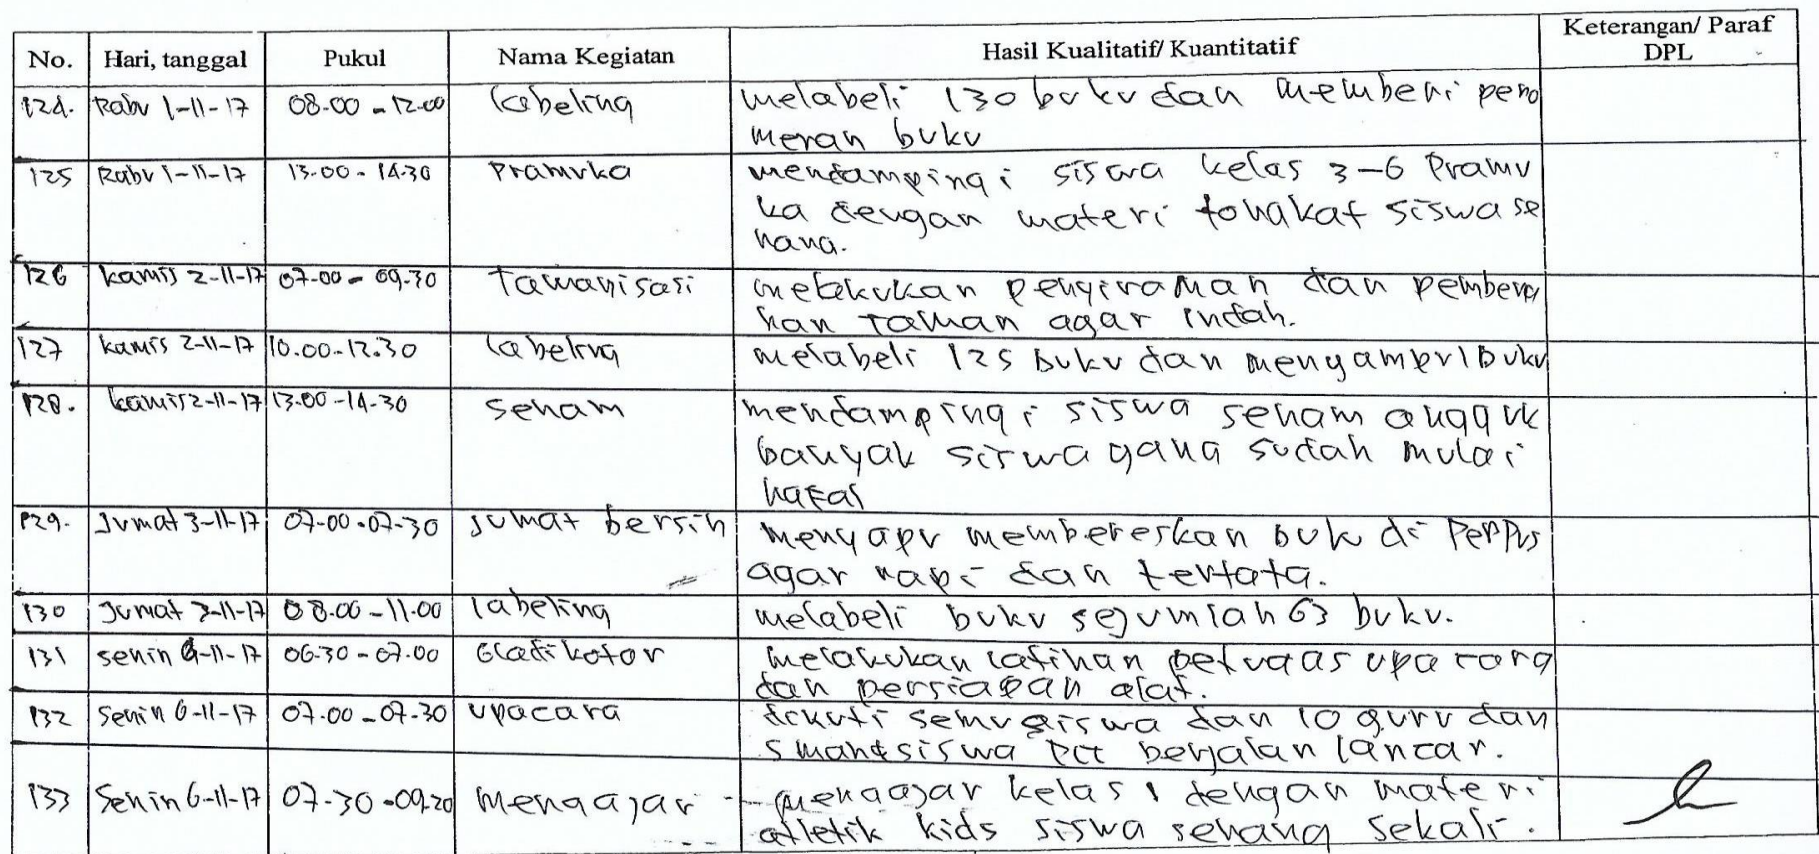 No. Hari, tanggal Pukul Nama Kegiatan Hasil Kualitatif/ Kuantitatif Keterangan/ Paraf DPL
124. Rabu 1-11-17 08.00 - 12.00 labeling melabeli 130 buku dan memberi peno
meran buku
125 Rabu 1-11-17 13.00 - 14.30 Pramuka mendampingi siswa kelas 3-6 Pramu
ka dengan materi tongkat siswa se
nang.
126 kamis 2-11-17 07.00 - 09.30 Tamanisasi melakukan penyiraman dan pembersi
han taman agar indah.
127 kamis 2-11-17 10.00-12.30 labeling melabeli 125 buku dan menyampul buku
128. kamis 2-11-17 13.00 -14.30 senam mendampingi siswa senam angguk
banyak siswa yang sudah mulai
hafal
129. Jumat 3-11-17 07.00-07.30 Jumat bersih menyapu membereskan buk di Perpus
agar rapi dan tertata.
130 Jumat 3-11-17 08.00 - 11.00 labeling melabeli buku sejumlah 63 buku.
131 senin 6-11-17 06.30 - 07.00 Gladi kotor melakukan latihan petugas upacara
dan persiapan alat.
132 Senin 6-11-17 07.00 - 07.30 upacara semua siswa dan 10 guru dan
berjalan lancar.
133 Senin 6-11-17 07.30 -09.20 mengajar mengajar kelas 1 dengan materi
atletik kids siswa senang sekali.